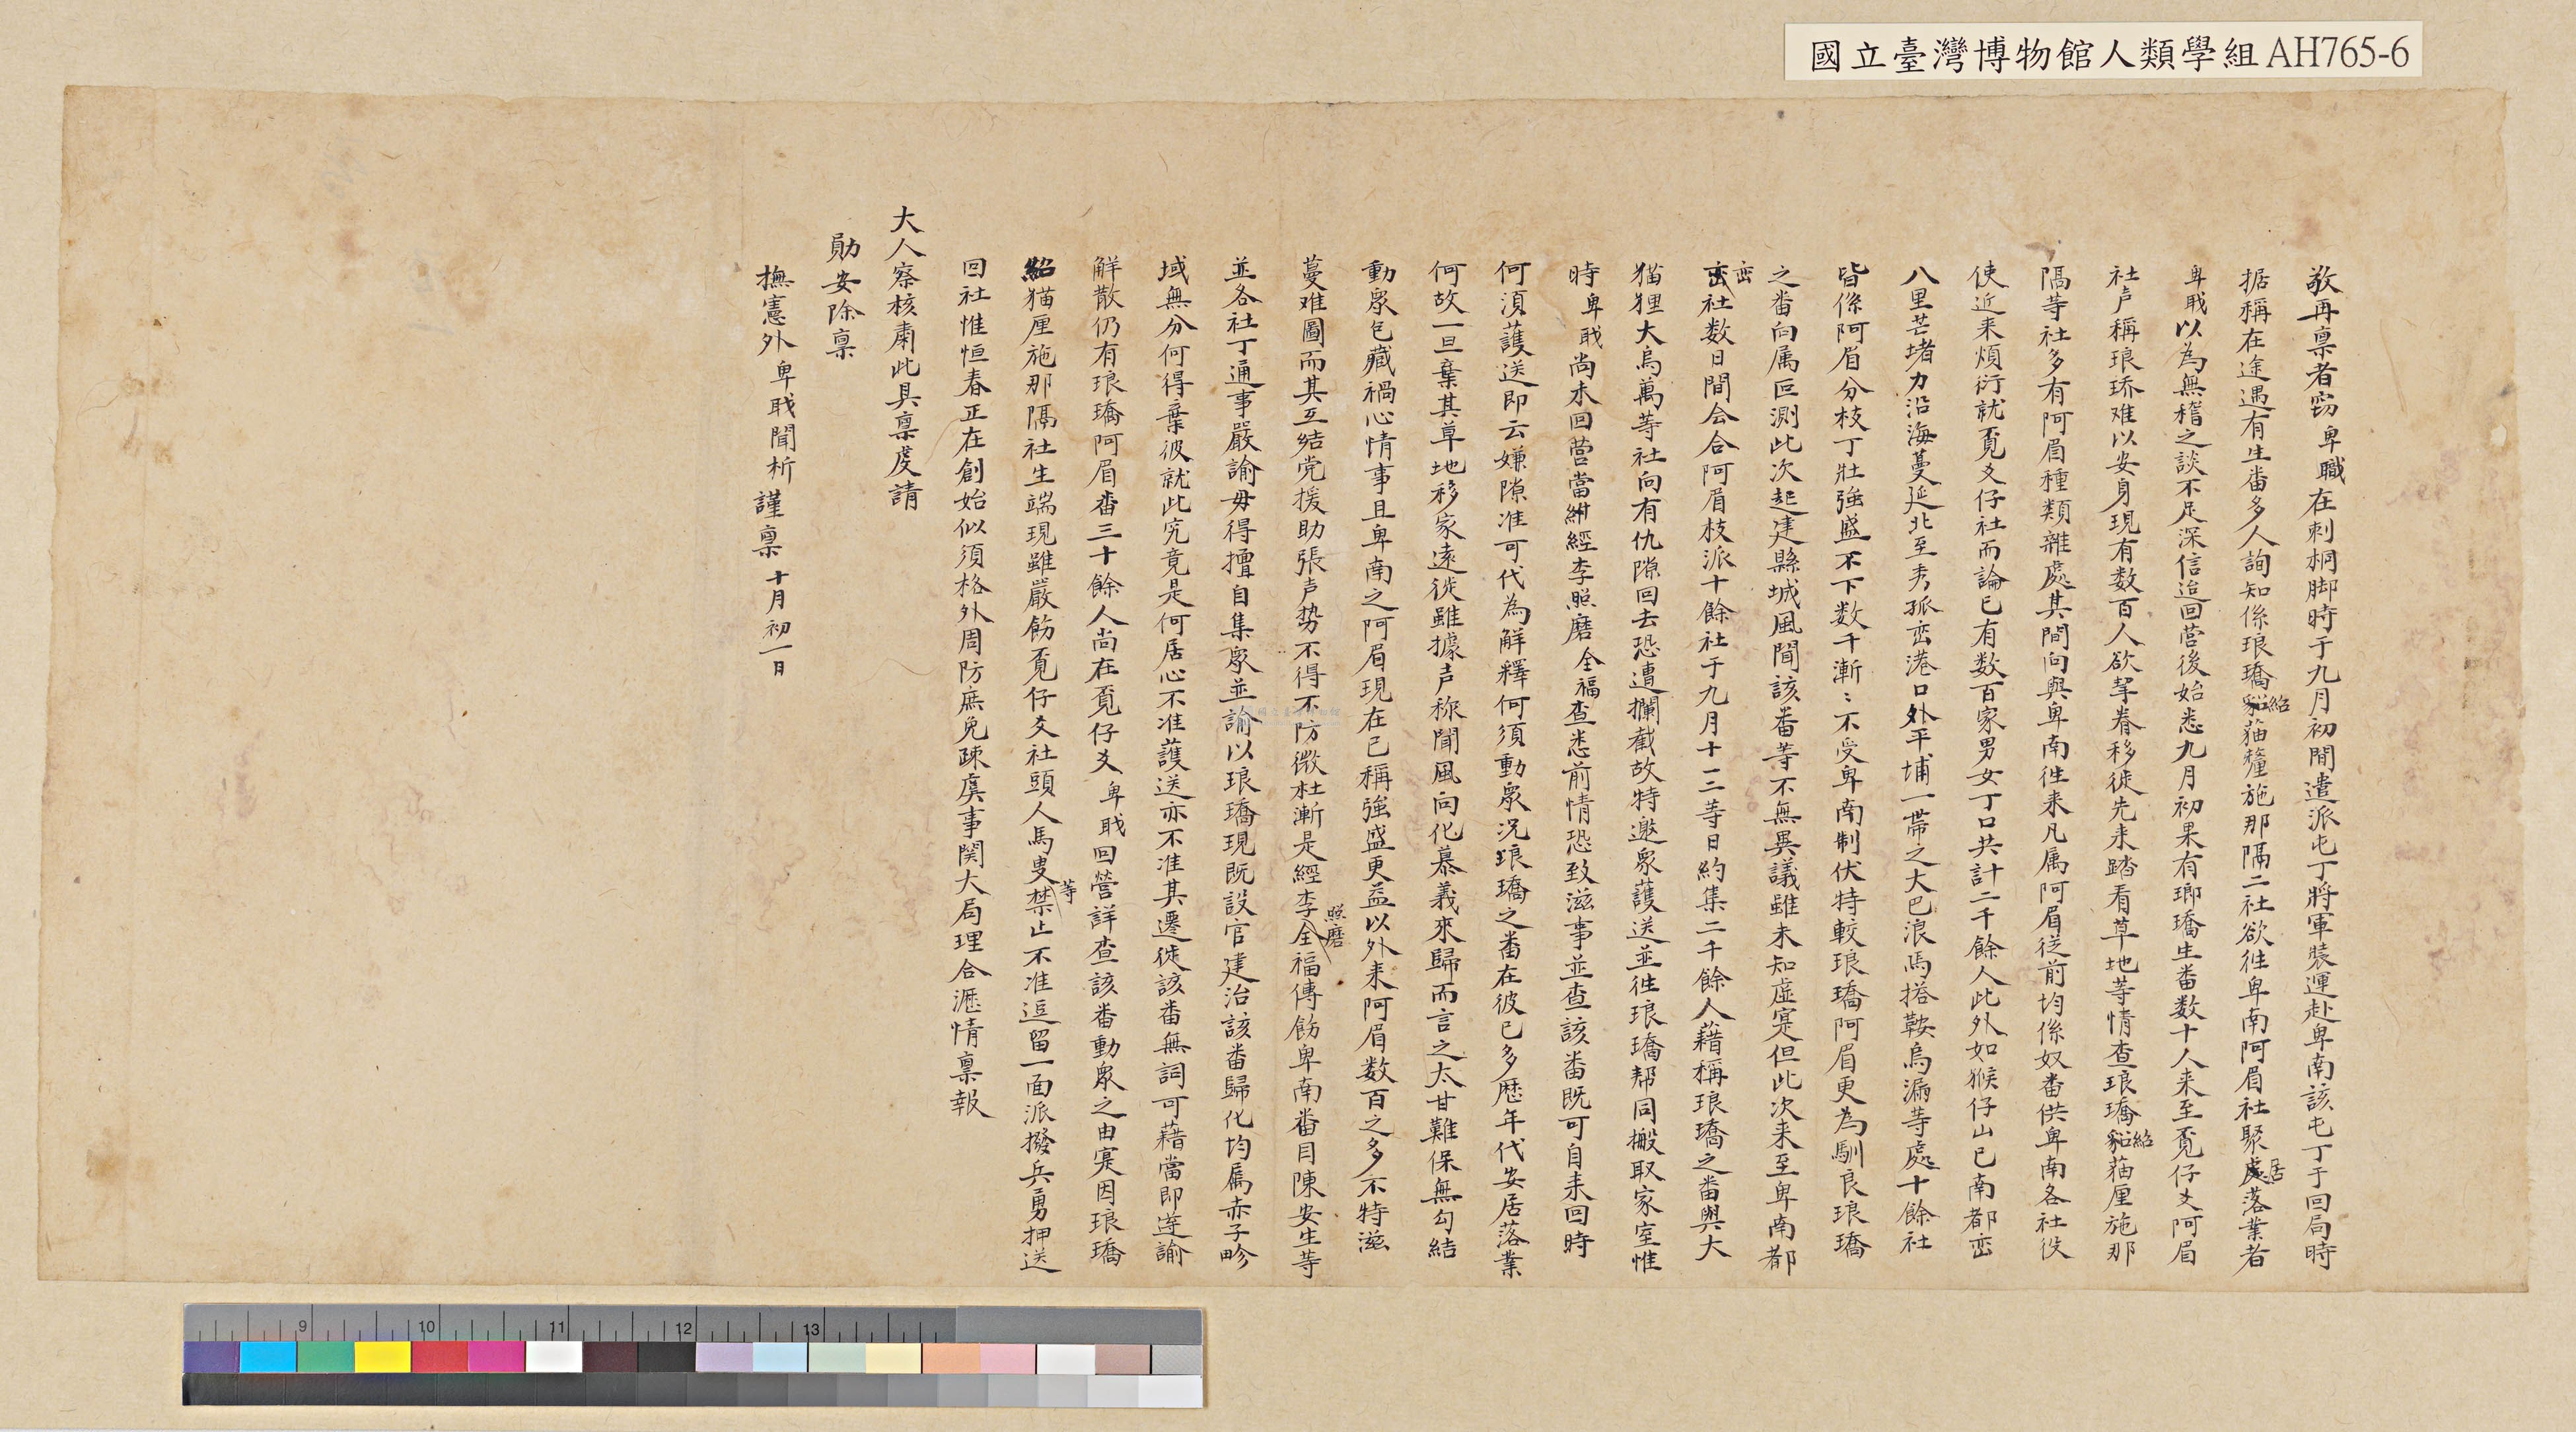 國立臺灣博物館人類學組 AH765-6
敬再稟者窃卑職在刺桐脚時于九月初間遣派屯丁將軍裝運赴卑南該屯丁于回局時
据稱在途遇有生番多人詢知係琅璚貂紹猫釐施那隔二社欲徃卑南阿眉社聚處居落業者
卑戝以為無稽之談不足深信迨回营後始悉九月初果有瑯璚生番数十人来至覔仔爻阿眉
社声稱琅珔难以安身現有数百人欲挈眷移徙先来踏看草地等情查琅璚貂紹猫厘施那
隔等社多有阿眉種類雜處其間向與卑南徃来凡属阿眉従前均係奴番供卑南各社役
使近来煩衍就覔爻仔社而論已有数百家男女丁口共計二千餘人此外如猴仔山已南都峦
八里芒堵力沿海蔓延北至秀孤峦港口外平埔一帯之大巴浪馬撘鞍烏漏等處十餘社
皆係阿眉分枝丁壯強盛不下数千漸〻不受卑南制伏特較琅璚阿眉更為馴良琅璚
之番向属叵測此次起建縣城風聞該番等不無異議雖未知虛寔但此次来至卑南都
峦峦社数日間会合阿眉枝派十餘社于九月十三等日約集二千餘人藉稱琅璚之番與大
猫狸大烏萬等社向有仇隙回去恐遭攔截故特邀衆護送並徃琅璚帮同搬取家室惟
時卑戝尚未回营當經李照磨全福查悉前情恐致滋事並查該番既可自来回時
何須護送即云嫌隙准可代為解釋何須動衆况琅璚之番在彼已多歷年代安居落業
何故一旦棄其草地移家遠徙雖據声称聞風向化慕義來歸而言之太甘難保無勾結
動衆包藏禍心情事且卑南之阿眉現在已稱強盛更益以外来阿眉数百之多不特滋
蔓难圖而其互结党援助張声势不得不防微杜漸是經李照磨全福傳飭卑南番目陳安生等
並各社丁通事嚴諭毋得擅自集衆並諭以琅璚現既設官建治該番歸化均属赤子畛
域無分何得棄彼就此究竟是何居心不准護送亦不准其遷徙該番無詞可藉當即遵諭
觧散仍有琅璚阿眉番三十餘人尚在覔仔爻卑戝回營詳查該番動衆之由寔因琅璚
紹猫厘施那隔社生端現雖嚴飭覔仔爻社頭人馬叟等禁止不准逗留一面派撥兵勇押送
回社惟恒春正在創始似須格外周防庶免踈虞事関大局理合瀝情稟報
大人察核肅此具稟虔請
勛安除稟
撫憲外卑戝聞析謹稟十月初一日
9 10 11 12 13